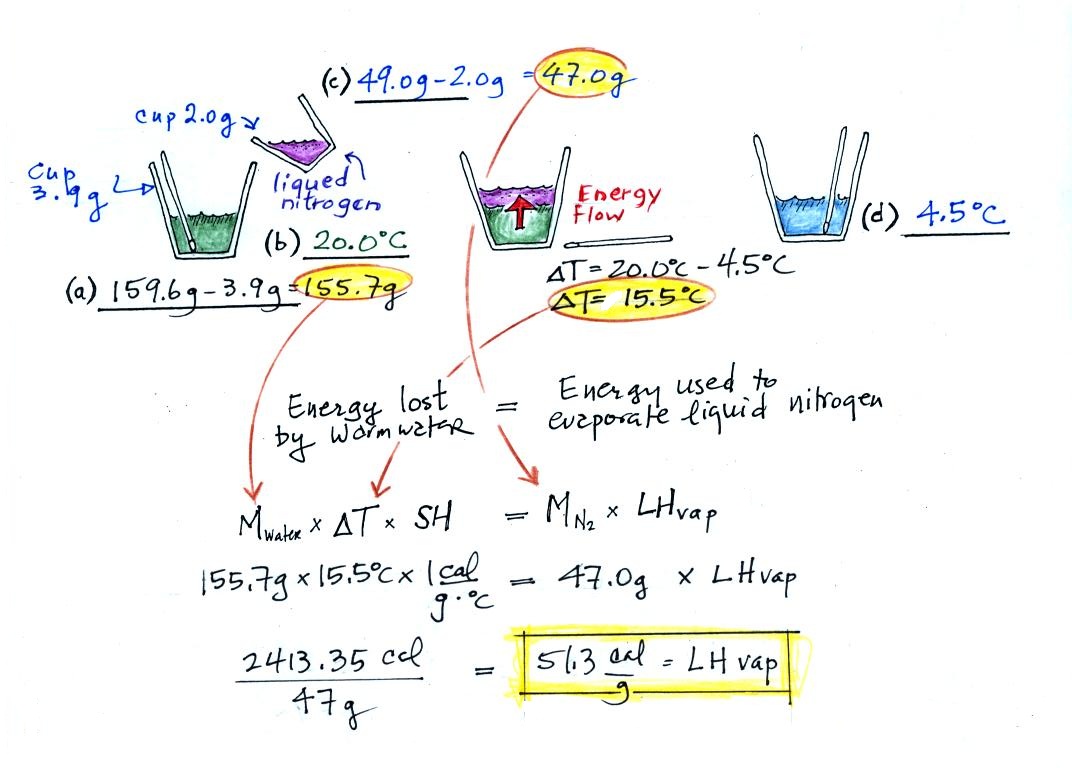 (c) 49.0g-2.0g = 47.0g
cup 2.0g
cup
3.9g
liqued
nitrogen
Energy
Flow
(b) 20.0°C
(d) 4.5°C
(a) 159.6g-3.9g=155.7g
ΔT=20.0°C-4.5°C
ΔT= 15.5°C
Energy lost
by warm water
=
Energy used to
evaporate liquid nitrogen
Mwater x ΔT x SH = MN2 x LHvap
155.7g x 15.5°C x 1 cal = 47.0g x LHvap
g.°C
2413.35 cal = 51.3 cal = LH vap
47g
g